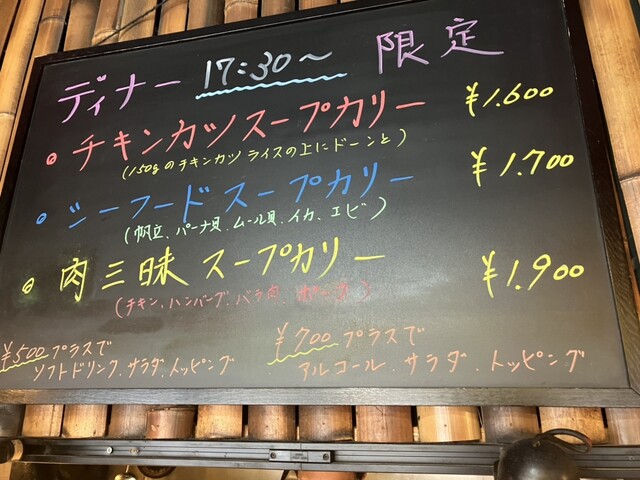 ディナー 17:30〜 限定
チキンカツスープカリー ¥1.600
(150gのチキンカツ ライスの上にドーンと)
シーフードスープカリー ¥1.700
(帆立、パーナ貝、ムール貝、イカ、エビ)
肉三昧 スープカリー ¥1.900
(チキン、ハンバーグ、バラ肉、)
¥500 プラスで
ソフトドリンク、サラダ、トッピング
¥700 プラスで
アルコール、サラダ、トッピング